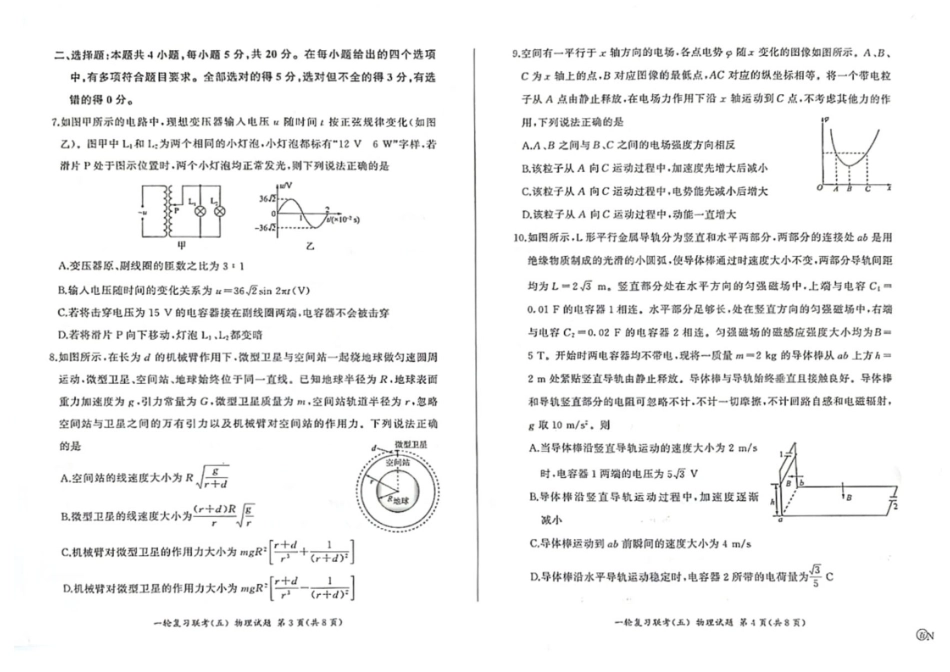 二、选择题:本题共4小题,每小题5分,共20分。在每小题给出的四个选项
中,有多项符合题目要求。全部选对的得5分,选对但不全的得3分,有选
错的得0分。
7.如图甲所示的电路中,理想变压器输入电压u随时间t按正弦规律变化(如图
乙)。图甲中L₁和L₂为两个相同的小灯泡,小灯泡都标有"12 V 6 W"字样,若
滑片P处于图示位置时,两个小灯泡均正常发光,则下列说法正确的是
~u
P
L₁
L₂
甲
u/V
36√2
0
-36√2
1
2
t/(×10⁻²s)
乙
A.变压器原、副线圈的匝数之比为3:1
B.输入电压随时间的变化关系为u=36√2sin 2πt(V)
C.若将击穿电压为15 V的电容器接在副线圈两端,电容器不会被击穿
D.若将滑片P向下移动,灯泡L₁、L₂都变暗
8.如图所示,在长为d的机械臂作用下,微型卫星与空间站一起绕地球做匀速圆周
运动,微型卫星、空间站、地球始终位于同一直线。已知地球半径为R,地球表面
重力加速度为g,引力常量为G,微型卫星质量为m,空间站轨道半径为r,忽略
空间站与卫星之间的万有引力以及机械臂对空间站的作用力。下列说法正确
的是
d
微型卫星
空间站
r
R
地球
A.空间站的线速度大小为R√(g/(r+d))
B.微型卫星的线速度大小为((r+d)R/r)√(g/r)
C.机械臂对微型卫星的作用力大小为mgR²[(r+d)/r³+1/(r+d)²]
D.机械臂对微型卫星的作用力大小为mgR²[(r+d)/r³-1/(r+d)²]
一轮复习联考(五) 物理试题 第3页(共8页)
9.空间有一平行于x轴方向的电场,各点电势φ随x变化的图像如图所示。A、B、
C为x轴上的点,B对应图像的最低点,AC对应的纵坐标相等。将一个带电粒
子从A点由静止释放,在电场力作用下沿x轴运动到C点,不考虑其他力的作
用,下列说法正确的是
A.A、B之间与B、C之间的电场强度方向相反
B.该粒子从A向C运动过程中,加速度先增大后减小
C.该粒子从A向C运动过程中,电势能先减小后增大
D.该粒子从A向C运动过程中,动能一直增大
φ
O
A
B
C
x
10.如图所示,L形平行金属导轨分为竖直和水平两部分,两部分的连接处ab是用
绝缘物质制成的光滑的小圆弧,使导体棒通过时速度大小不变,两部分导轨间距
均为L=2√3 m。竖直部分处在水平方向的匀强磁场中,上端与电容C₁=
0.01 F的电容器1相连。水平部分足够长,处在竖直方向的匀强磁场中,右端
与电容C₂=0.02 F的电容器2相连。匀强磁场的磁感应强度大小均为B=
5 T。开始时两电容器均不带电,现将一质量m=2 kg的导体棒从ab上方h=
2 m处紧贴竖直导轨由静止释放。导体棒与导轨始终垂直且接触良好。导体棒
和导轨竖直部分的电阻可忽略不计,不计一切摩擦,不计回路自感和电磁辐射,
g取10 m/s²。则
A.当导体棒沿竖直导轨运动的速度大小为2 m/s
时,电容器1两端的电压为5√3 V
B.导体棒沿竖直导轨运动过程中,加速度逐渐
减小
C.导体棒运动到ab前瞬间的速度大小为4 m/s
D.导体棒沿水平导轨运动稳定时,电容器2所带的电荷量为√3/5 C
1
B
b
h
a
B
2
一轮复习联考(五) 物理试题 第4页(共8页)